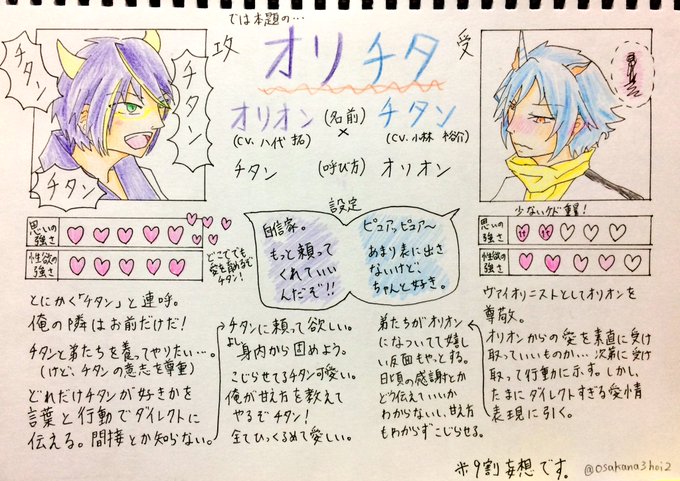 では本題の…
攻
オリチタ
受
チタン
チタン
チタン
オリオン (名前) チタン
×
(CV. 八代 拓)
(CV. 小林 裕介)
チタン (呼び方) オリオン
設定
思いの強さ
性欲の強さ
どこででも
愛を語れるぞ
チタン!
自信家。
もっと頼って
くれていい
んだぞ!!
ピュアッピュア〜
あまり表に出さ
ないけど、
ちゃんと好き。
少ないケド重量!
思いの強さ
性欲の強さ
とにかく「チタン」と連呼。
俺の隣はお前だけだ!
チタンと弟たちを養ってやりたい…。
(けど、チタンの意志を尊重)
どれだけチタンが好きかを
言葉と行動でダイレクトに
伝える。間接とか知らない。
チタンに頼って欲しい。
よし身内から固めよう。
こじらせてるチタン可愛い。
俺が甘え方を教えて
やるぞチタン!
全てひっくるめて愛しい。
ヴァイオリニストとしてオリオンを
尊敬。
オリオンからの愛を素直に受け
取っていいものか…次第に受け
取って行動に示す。しかし、
たまにダイレクトすぎる愛情
表現に引く。
弟たちがオリオン
になついてて嬉し
い反面もやっとする。
日頃の感謝とか
どう伝えていいか
わからないし、甘え方
もわからずこじらせる。
※9割妄想です。
@osakana3hoi2